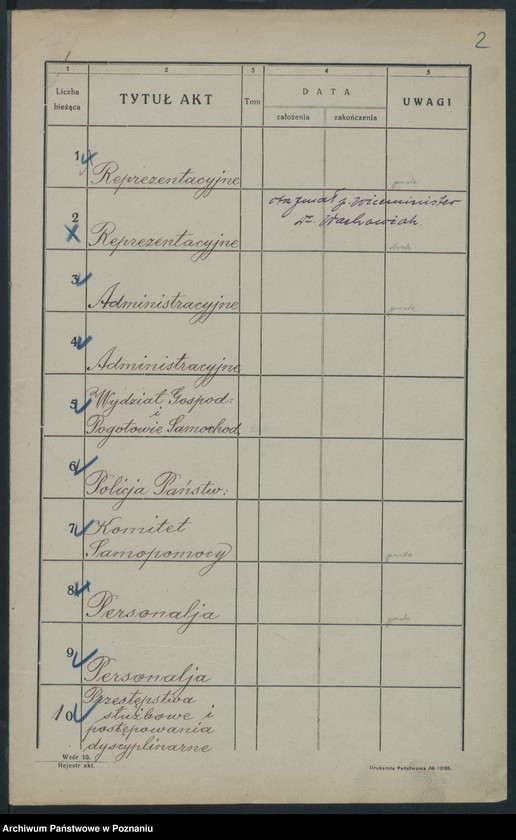 2
1 2 3 4 5
Liczba bieżąca TYTUŁ AKT Tom DATA UWAGI
założenia zakończenia
1 Reprezentacyjne
otrzymał p. viceminister
Dr. Wachowiak.
2 Reprezentacyjne
3 Administracyjne
4 Administracyjne
5 Wydział Gospod:
i
Pogotowie Samochod.
6 Policja Państw:
7 Komitet
Samopomocy
8 Personalja
9 Personalja
10 Przestępstwa
służbowe i
postępowania
dyscyplinarne
Wzór 10.
Rejestr akt.
Drukarnia Państwowa
Archiwum Państwowe w Poznaniu